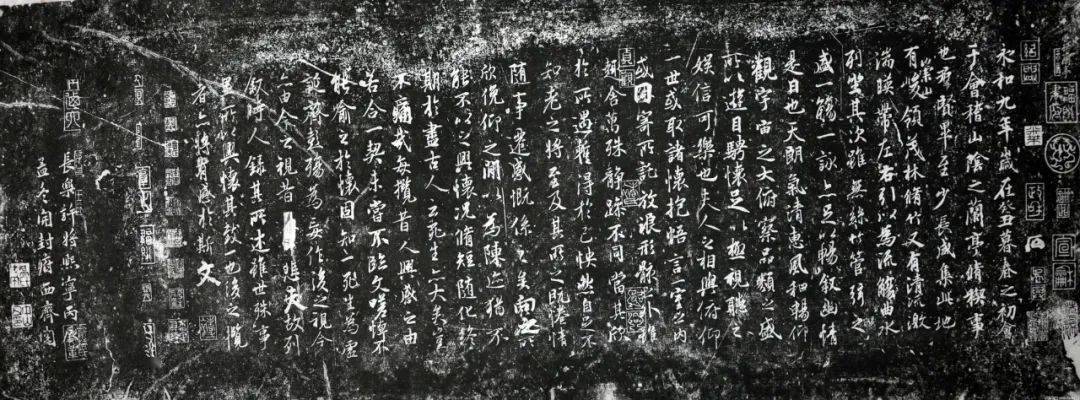 永和九年歲在癸丑暮春之初會
于會稽山陰之蘭亭脩稧事
也群賢畢至少長咸集此地
有崇山峻領茂林脩竹又有清流激
湍暎帶左右引以為流觴曲水
列坐其次雖無絲竹管弦之
盛一觴一詠亦足以暢敘幽情
是日也天朗氣清惠風和暢仰
觀宇宙之大俯察品類之盛
所以遊目騁懷足以極視聽之
娛信可樂也夫人之相與俯仰
一世或取諸懷抱悟言一室之內
或因寄所託放浪形骸之外雖
趣舍萬殊靜躁不同當其欣
於所遇蹔得於己怏然自足不
知老之將至及其所之既惓情
隨事遷感慨係之矣向之所
欣俛仰之閒以為陳迹猶不
能不以之興懷況脩短隨化終
期於盡古人云死生亦大矣豈
不痛哉每攬昔人興感之由
若合一契未嘗不臨文嗟悼不
能喻之於懷固知一死生為虛
誕齊彭殤為妄作後之視今
亦由今之視昔悲夫故列
敘時人錄其所述雖世殊事
異所以興懷其致一也後之攬
者亦將有感於斯文
長樂許將熙寧丙辰
孟冬開封府西齋閱